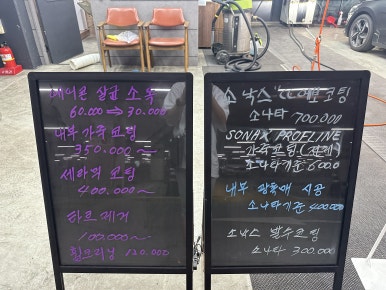 에어콘 살균 소독
60.000 ⇒ 30.000
내부 가죽 코팅
350.000 ~
세라믹 코팅
400.000 ~
타르 제거
100.000 ~
휠크리닝 120.000
소낙스 코팅
소나타 700.000
SONAX PROFILINE
가죽코팅 (전체)
소나타기준 600.0
내부 광촉매 시공
소나타기준 400.000
소낙스 발수코팅
소나타 300.000